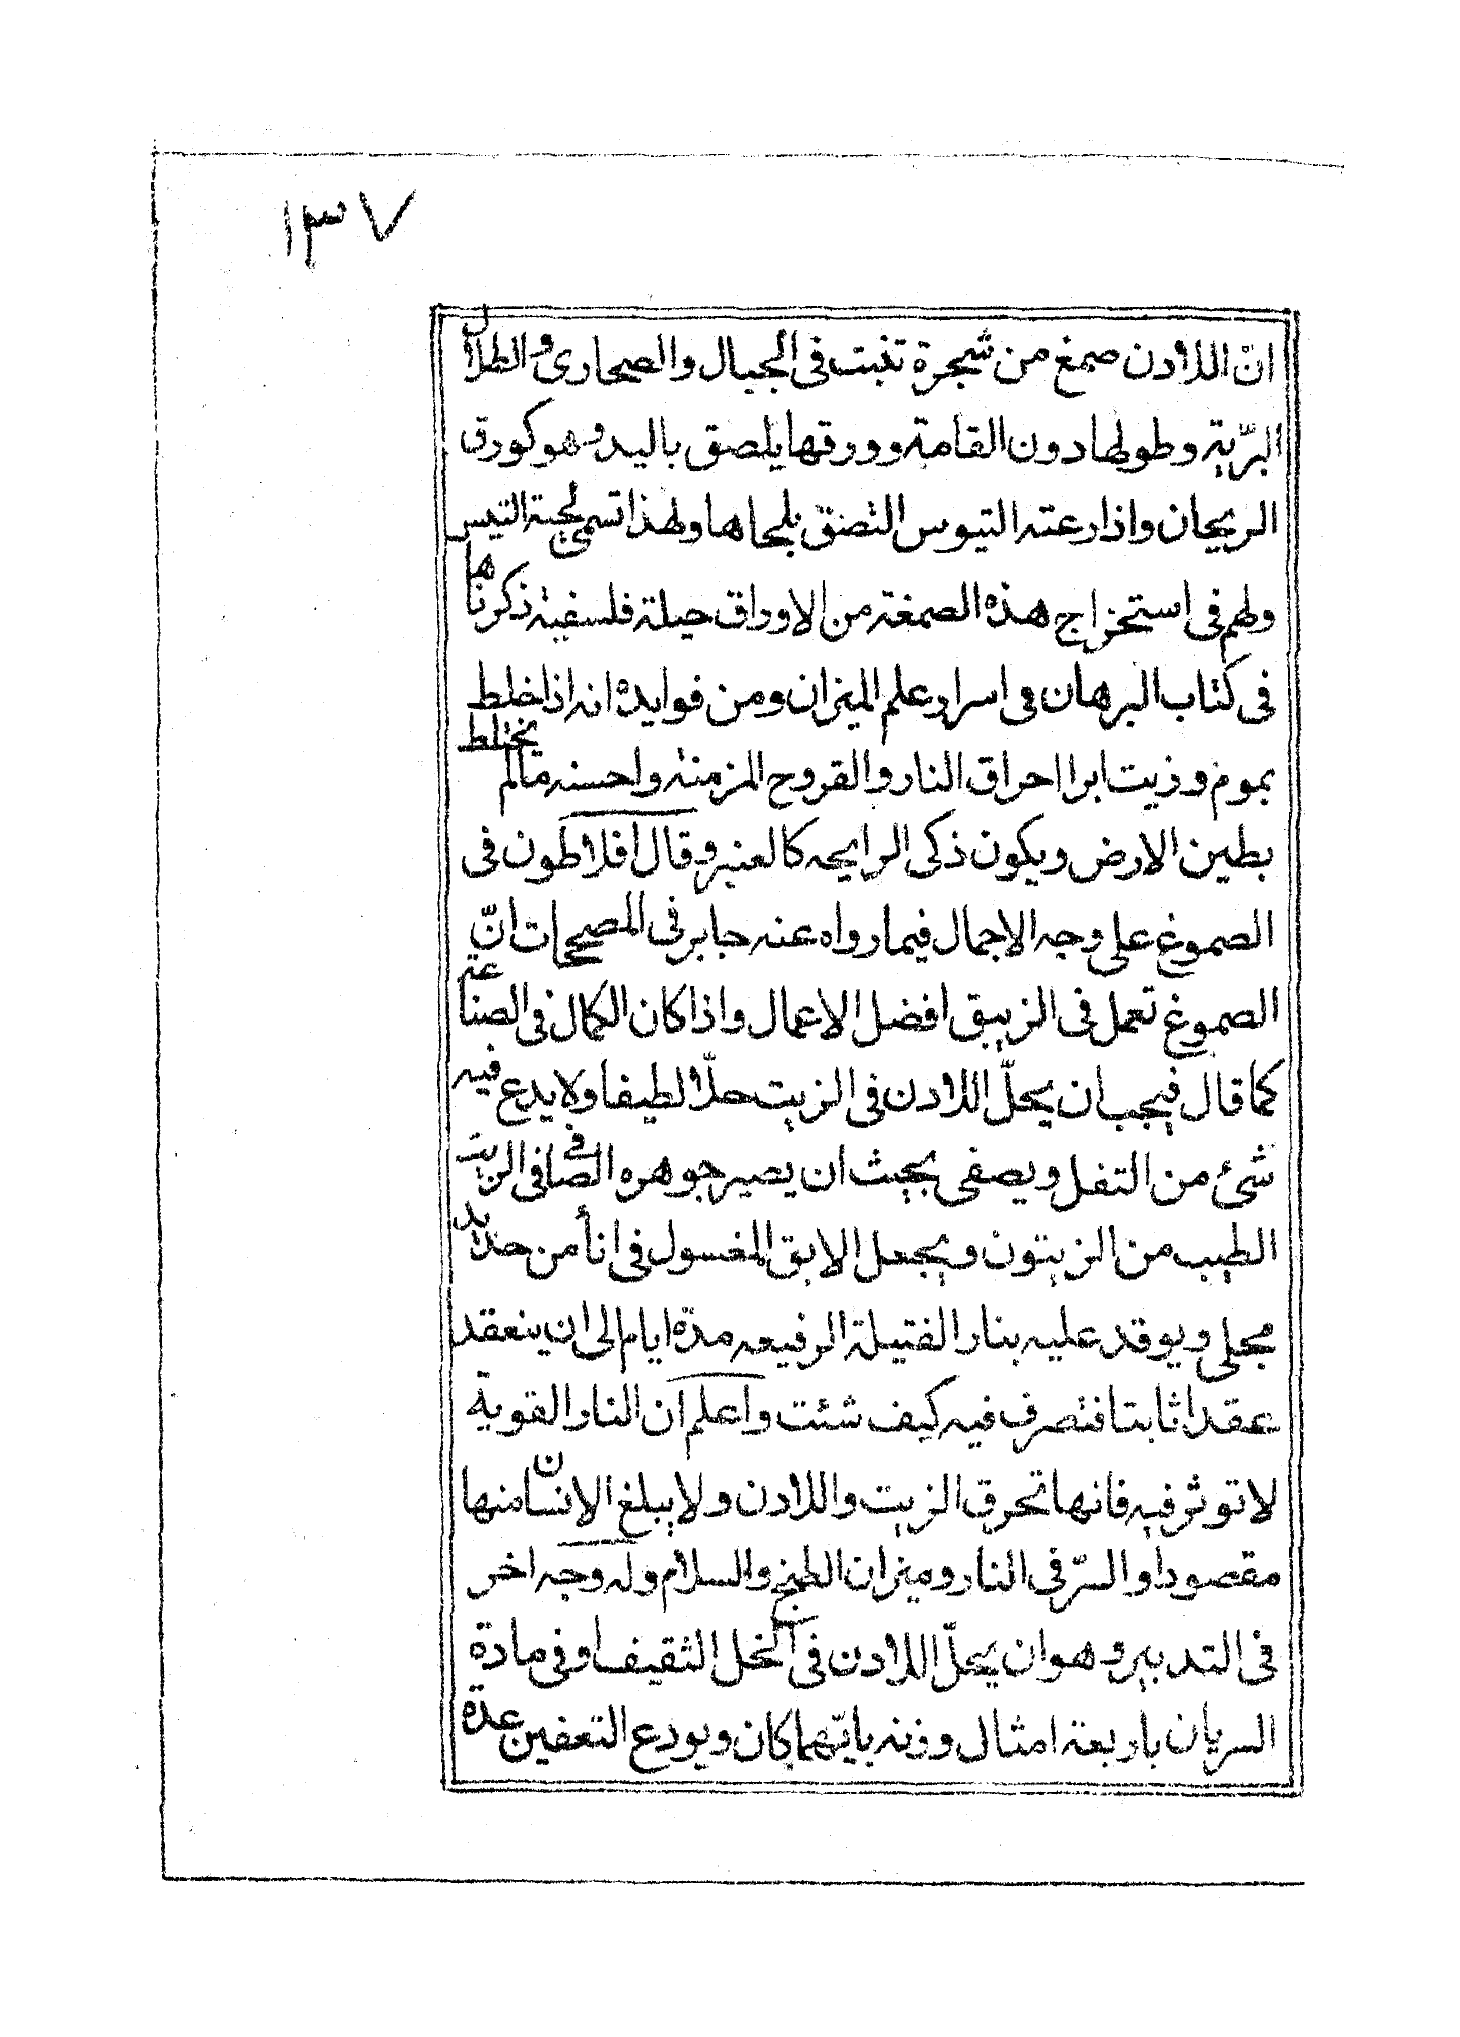 ١٣٧
انّ اللادن صمغ من شجرة تنبت فى الجبال والصحارى والظلال
البرّية وطولها دون القامة وورقها يلصق باليد وهو كورق
الريحان واذا رعته التيوس التصق بلحاها ولهذا تسمى لحية التيس
ولهم فى استخراج هذه الصمغة من الاوراق حيلة فلسفية ذكرناها
فى كتاب البرهان فى اسرار علم الميزان ومن فوايده انه اذا خلط
بموم وزيت ابرا احراق النار والقروح المزمنة واحسنه مالم يختلط
بطين الارض ويكون ذكى الرايحه كالعنبر وقال افلاطون فى
الصموغ على وجه الاجمال فيما رواه عنه جابر فى المصححات انّ
الصموغ تعمل فى الزيبق افضل الاعمال واذا كان الكمال فى الصناعة
كما قال فيجب ان يحلّ اللادن فى الزيت حلّا لطيفا ولا يدع فيه
شئ من التفل ويصفى بحيث ان يصير جوهره الصافى فى الزيت
الطيب من الزيتون ويجعل الابق المغسول فى انأ من حديد
مجلى ويوقد عليه بنار الفتيلة الرفيعه مدّة ايام الى ان ينعقد
عقدا ثابتا فتصرف فيه كيف شئت واعلم ان النار القوية
لا توثر فيه فانها تحرق الزيت واللادن ولا يبلغ الانسان منها
مقصودا والسرّ فى النار وميزان الطبخ والسلام وله وجه اخر
فى التدبير وهو ان يحلّ اللادن فى الخل الثقيف او فى مادة
السريان باربعة امثال وزنه بايّهما كان ويودع التعفين عدة